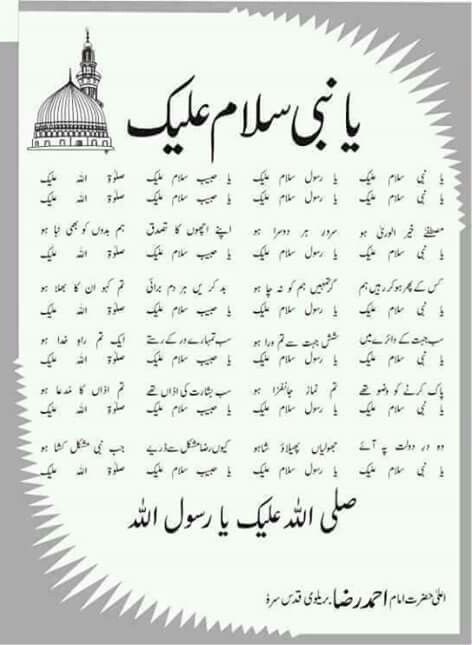 یا نبی سلام علیک
یا نبی سلام علیک یا رسول سلام علیک یا حبیب سلام علیک صلوٰۃ اللہ علیک
یا نبی سلام علیک یا رسول سلام علیک یا حبیب سلام علیک صلوٰۃ اللہ علیک
مصطفےٰ خیر الوریٰ ہو سرور ہر دوسرا ہو اپنے اچھوں کا تصدق ہم بدوں کو بھی نبا ہو
یا نبی سلام علیک یا رسول سلام علیک یا حبیب سلام علیک صلوٰۃ اللہ علیک
کس کے پھر ہو کر رہیں ہم گر تمہیں ہم کو نہ چا ہو بد کریں ہر دم برائی تم کہو ان کا بھلا ہو
یا نبی سلام علیک یا رسول سلام علیک یا حبیب سلام علیک صلوٰۃ اللہ علیک
سب جہت کے دائرے میں شش جہت سے تم ورا ہو سب تمہارے در کے رستے ایک تم راہ خدا ہو
یا نبی سلام علیک یا رسول سلام علیک یا حبیب سلام علیک صلوٰۃ اللہ علیک
پاک کرنے کو وضو تھے تم نماز جانفزا ہو سب بشارت کی اذاں تھے تم اذاں کا مدعا ہو
یا نبی سلام علیک یا رسول سلام علیک یا حبیب سلام علیک صلوٰۃ اللہ علیک
وہ در دولت پہ آئے جھولیاں پھیلاؤ شاہو کیوں رضا مشکل سے ڈریے جب نبی مشکل کشا ہو
یا نبی سلام علیک یا رسول سلام علیک یا حبیب سلام علیک صلوٰۃ اللہ علیک
صلی اللہ علیک یا رسول اللہ
اعلیٰ حضرت امام احمد رضا بریلوی قدس سرہ